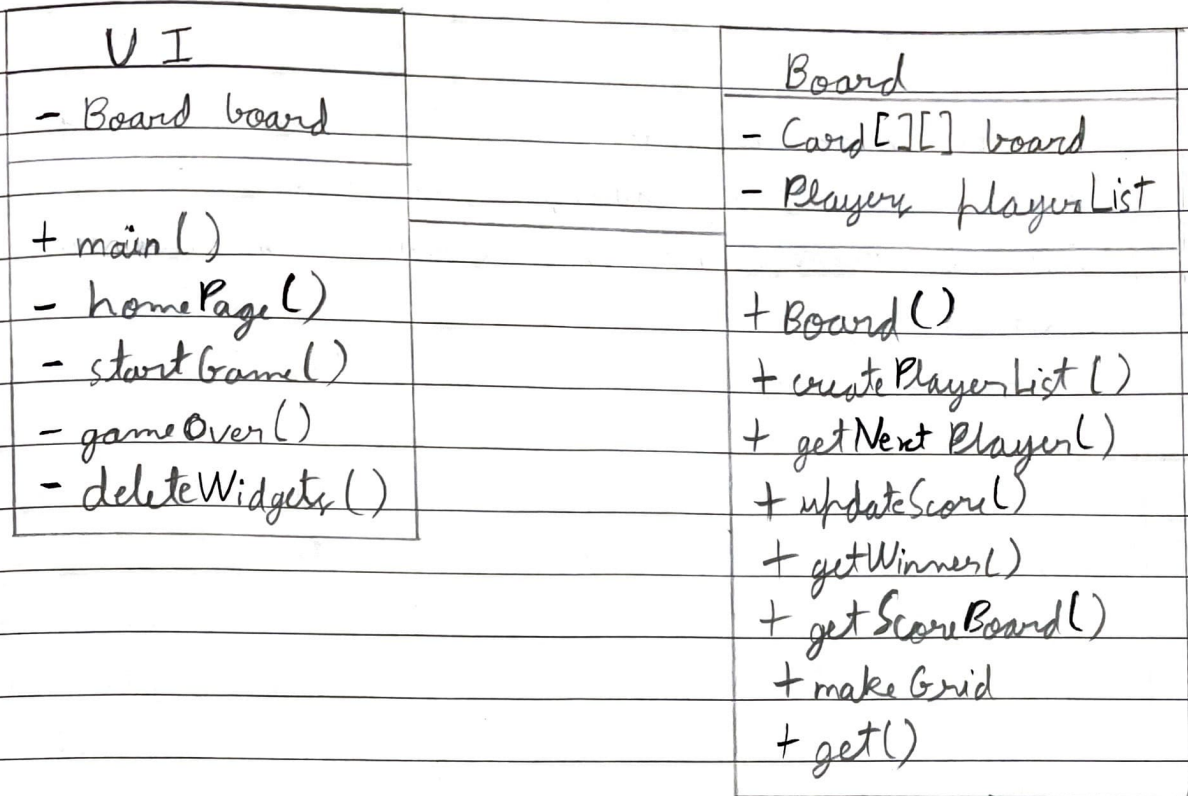 UI
- Board board
+ main()
- homePage()
- startGame()
- gameOver()
- deleteWidgets()
Board
- Card[][] board
- Players playerList
+ Board()
+ createPlayerList()
+ getNextPlayer()
+ updateScore()
+ getWinner()
+ getScoreBoard()
+ makeGrid
+ get()